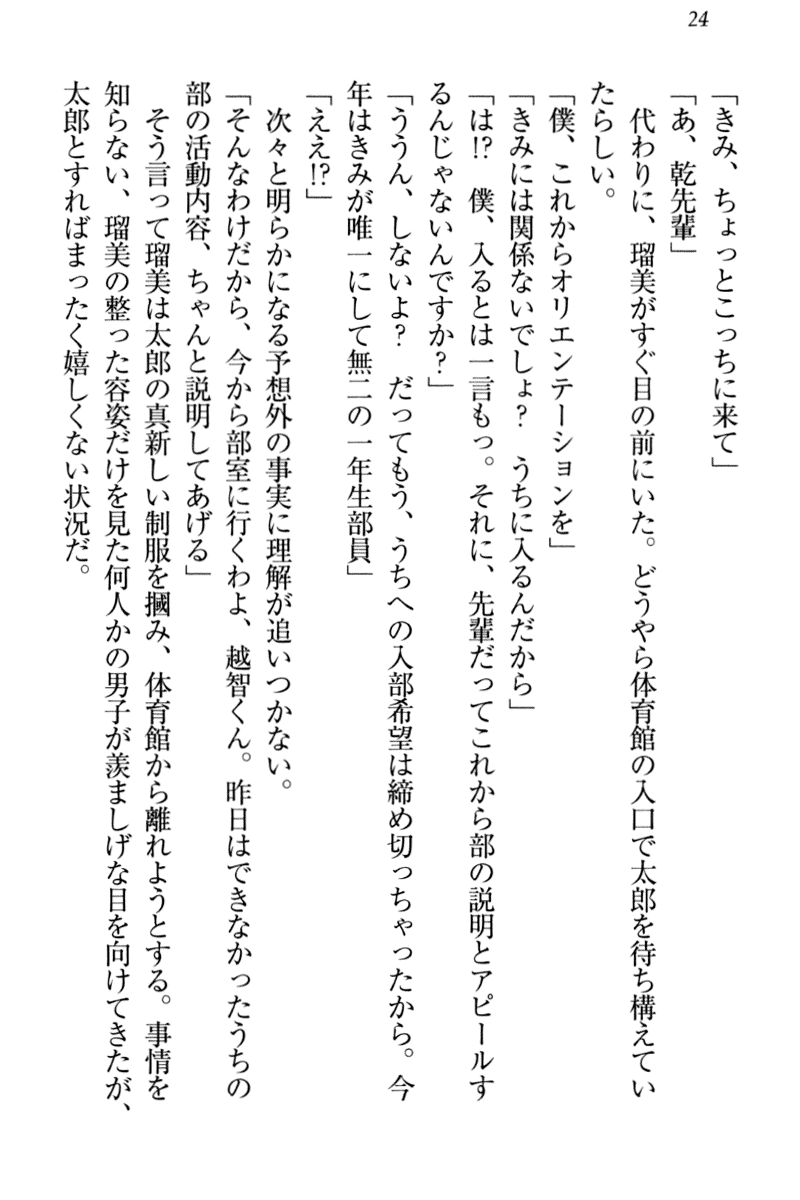 24
「きみ、ちょっとこっちに来て」
「あ、乾先輩」
　代わりに、瑠美がすぐ目の前にいた。どうやら体育館の入口で太郎を待ち構えてい
たらしい。
「僕、これからオリエンテーションを」
「きみには関係ないでしょ？　うちに入るんだから」
「は!?　僕、入るとは一言もっ。それに、先輩だってこれから部の説明とアピールす
るんじゃないんですか？」
「ううん、しないよ？　だってもう、うちへの入部希望は締め切っちゃったから。今
年はきみが唯一にして無二の一年生部員」
「ええ!?」
　次々と明らかになる予想外の事実に理解が追いつかない。
「そんなわけだから、今から部室に行くわよ、越智くん。昨日はできなかったうちの
部の活動内容、ちゃんと説明してあげる」
　そう言って瑠美は太郎の真新しい制服を摑み、体育館から離れようとする。事情を
知らない、瑠美の整った容姿だけを見た何人かの男子が羨ましげな目を向けてきたが、
太郎とすればまったく嬉しくない状況だ。